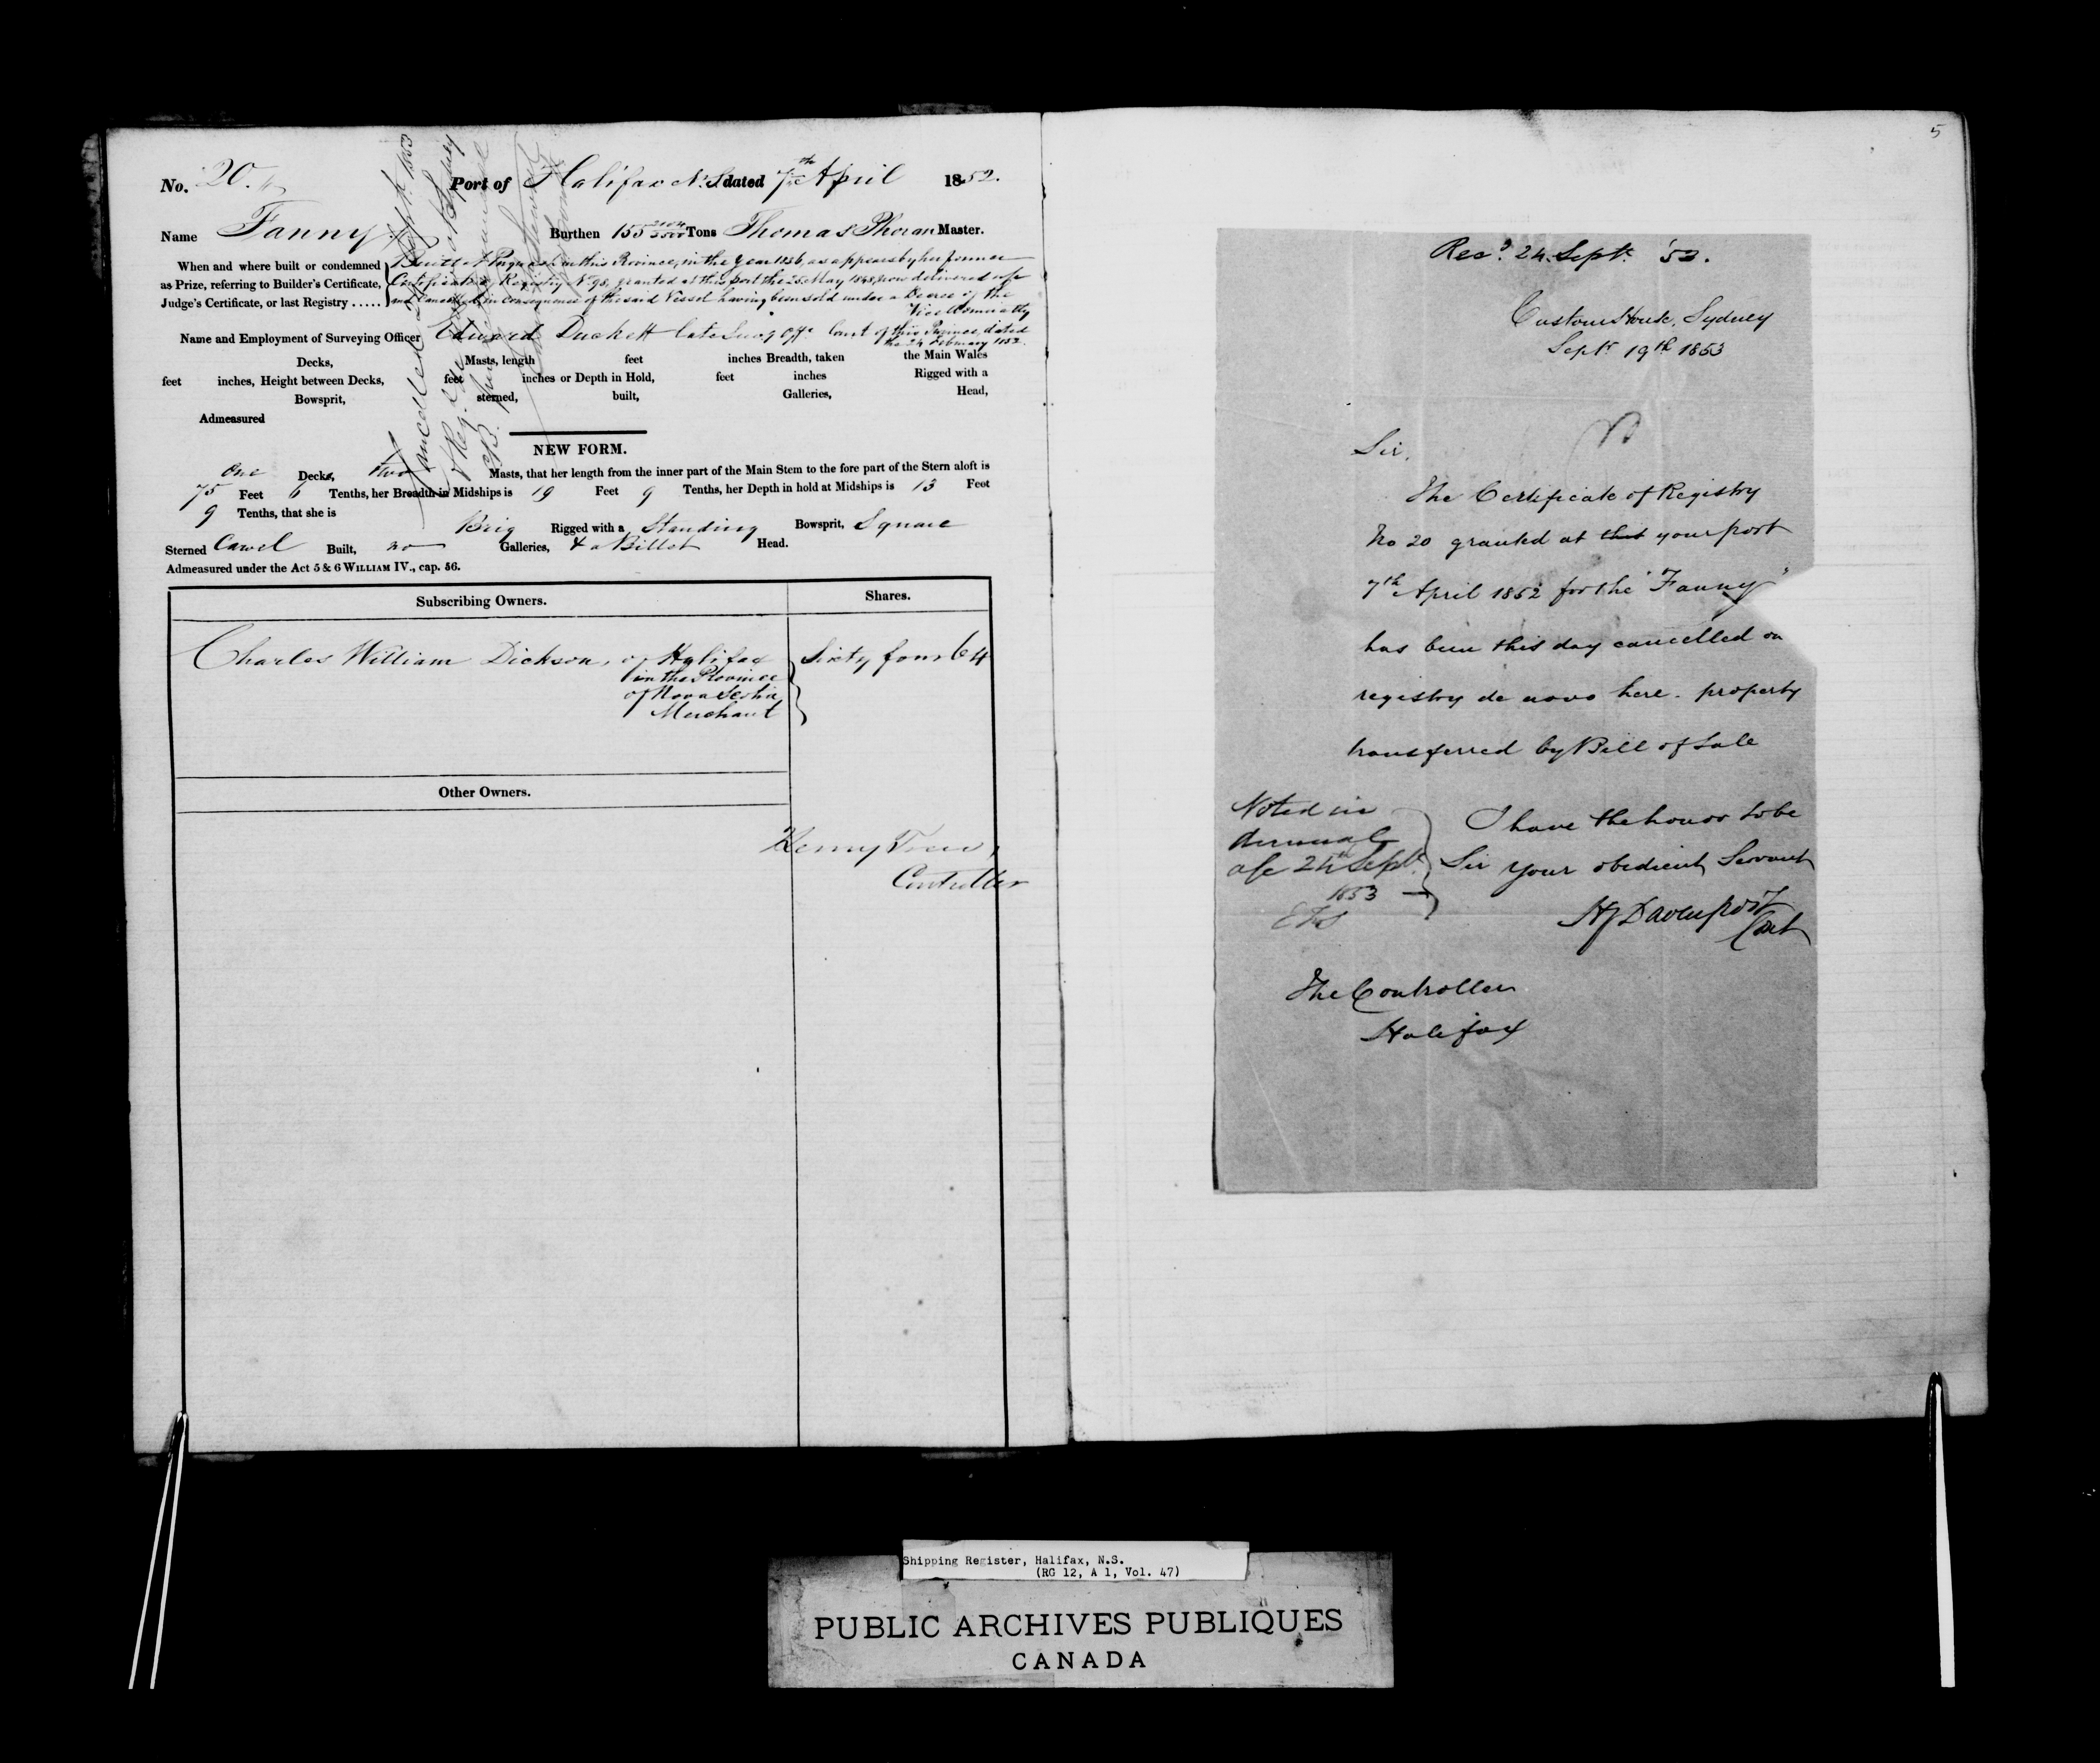 No. 20. Port of Halifax N.S. dated 7th April 1852.
Name Fanny Burthen 155 2104/3500 Tons Thomas Phoran Master.
When and where built or condemned
as Prize, referring to Builder's Certificate,
Judge's Certificate, or last Registry .....
Built at Pugwash in this Province, in the Year 1836, as appears by her former
Certificate of Registry No 98, granted at this port the 25 May 1848, now delivered up
and Cancelled in consequence of the said Vessel having been sold under a Decree of the
Vice Admiralty
Court of this Province, dated
the 24 February 1852.
Name and Employment of Surveying Officer Edward Duckett late Survg Offr
Decks, Masts, length feet inches Breadth, taken the Main Wales
feet inches, Height between Decks, feet inches or Depth in Hold, feet inches Rigged with a
Bowsprit, sterned, built, Galleries, Head,
Admeasured
Cancelled Sept. 1853
NEW FORM.
one Decks, two Masts, that her length from the inner part of the Main Stem to the fore part of the Stern aloft is
75 Feet 6 Tenths, her Breadth in Midships is 19 Feet 9 Tenths, her Depth in hold at Midships is 13 Feet
9 Tenths, that she is Brig Rigged with a Standing Bowsprit, Square
Sterned Carvel Built, no Galleries, & a Billet Head.
Admeasured under the Act 5 & 6 WILLIAM IV., cap. 56.
Subscribing Owners. Shares.
Charles William Dickson, of Halifax Sixty four 64
in the Province
of Nova Scotia
Merchant
Other Owners.
Henry Trew,
Controller
5
Recd. 24 Sept. '53.
Custom House, Sydney
Septr 19th 1853
Sir,
The Certificate of Registry
No 20 granted at that your port
7th April 1852 for the "Fanny"
has been this day cancelled on
registry de novo here - property
transferred by Bill of Sale
I have the honor to be
Sir your obedient Servant
HJ Davenport
Cont
Noted in
Annual
a/c 24th Sept.
1853
The Controller
Halifax
Shipping Register, Halifax, N.S.
(RG 12, A 1, Vol. 47)
PUBLIC ARCHIVES PUBLIQUES
CANADA